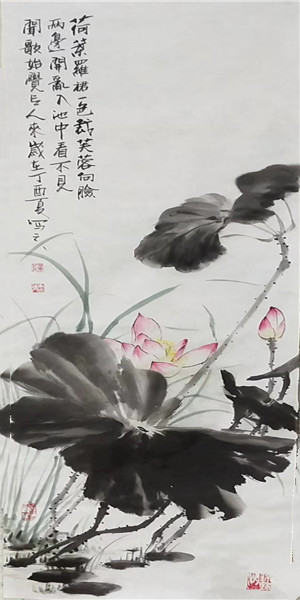 荷葉羅裙一色裁芙蓉向臉
兩邊開亂入池中看不見
聞歌始覺有人來歲在丁酉夏寫之